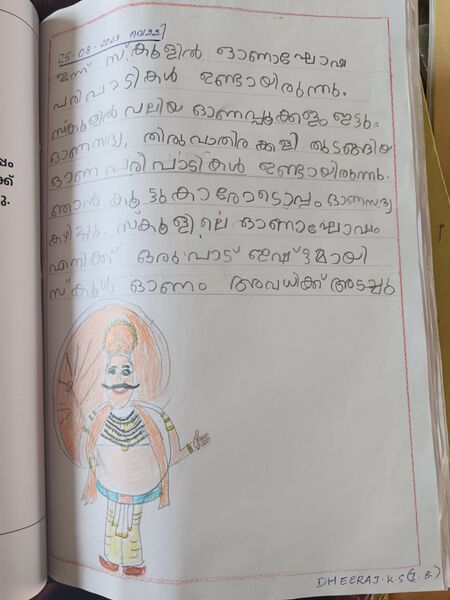 25-08-2023 വെള്ളി
ഇന്ന് സ്കൂളിൽ ഓണാഘോഷ
പരിപാടികൾ ഉണ്ടായിരുന്നു.
സ്കൂളിൽ വലിയ ഓണപ്പൂക്കളം ഇട്ടു.
ഓണസദ്യ, തിരുവാതിര കളി തുടങ്ങിയ
ഓണ പരിപാടികൾ ഉണ്ടായിരുന്നു.
ഞാൻ കൂട്ടുകാരോടൊപ്പം ഓണസദ്യ
കഴിച്ചു. സ്കൂളിലെ ഓണാഘോഷം
എനിക്ക് ഒരുപാട് ഇഷ്ട്ടമായി
സ്കൂൾ ഓണം അവധിക്ക് അടച്ചു
DHEERAJ.K.S(2.B)
പം
ക്ക്
റു.